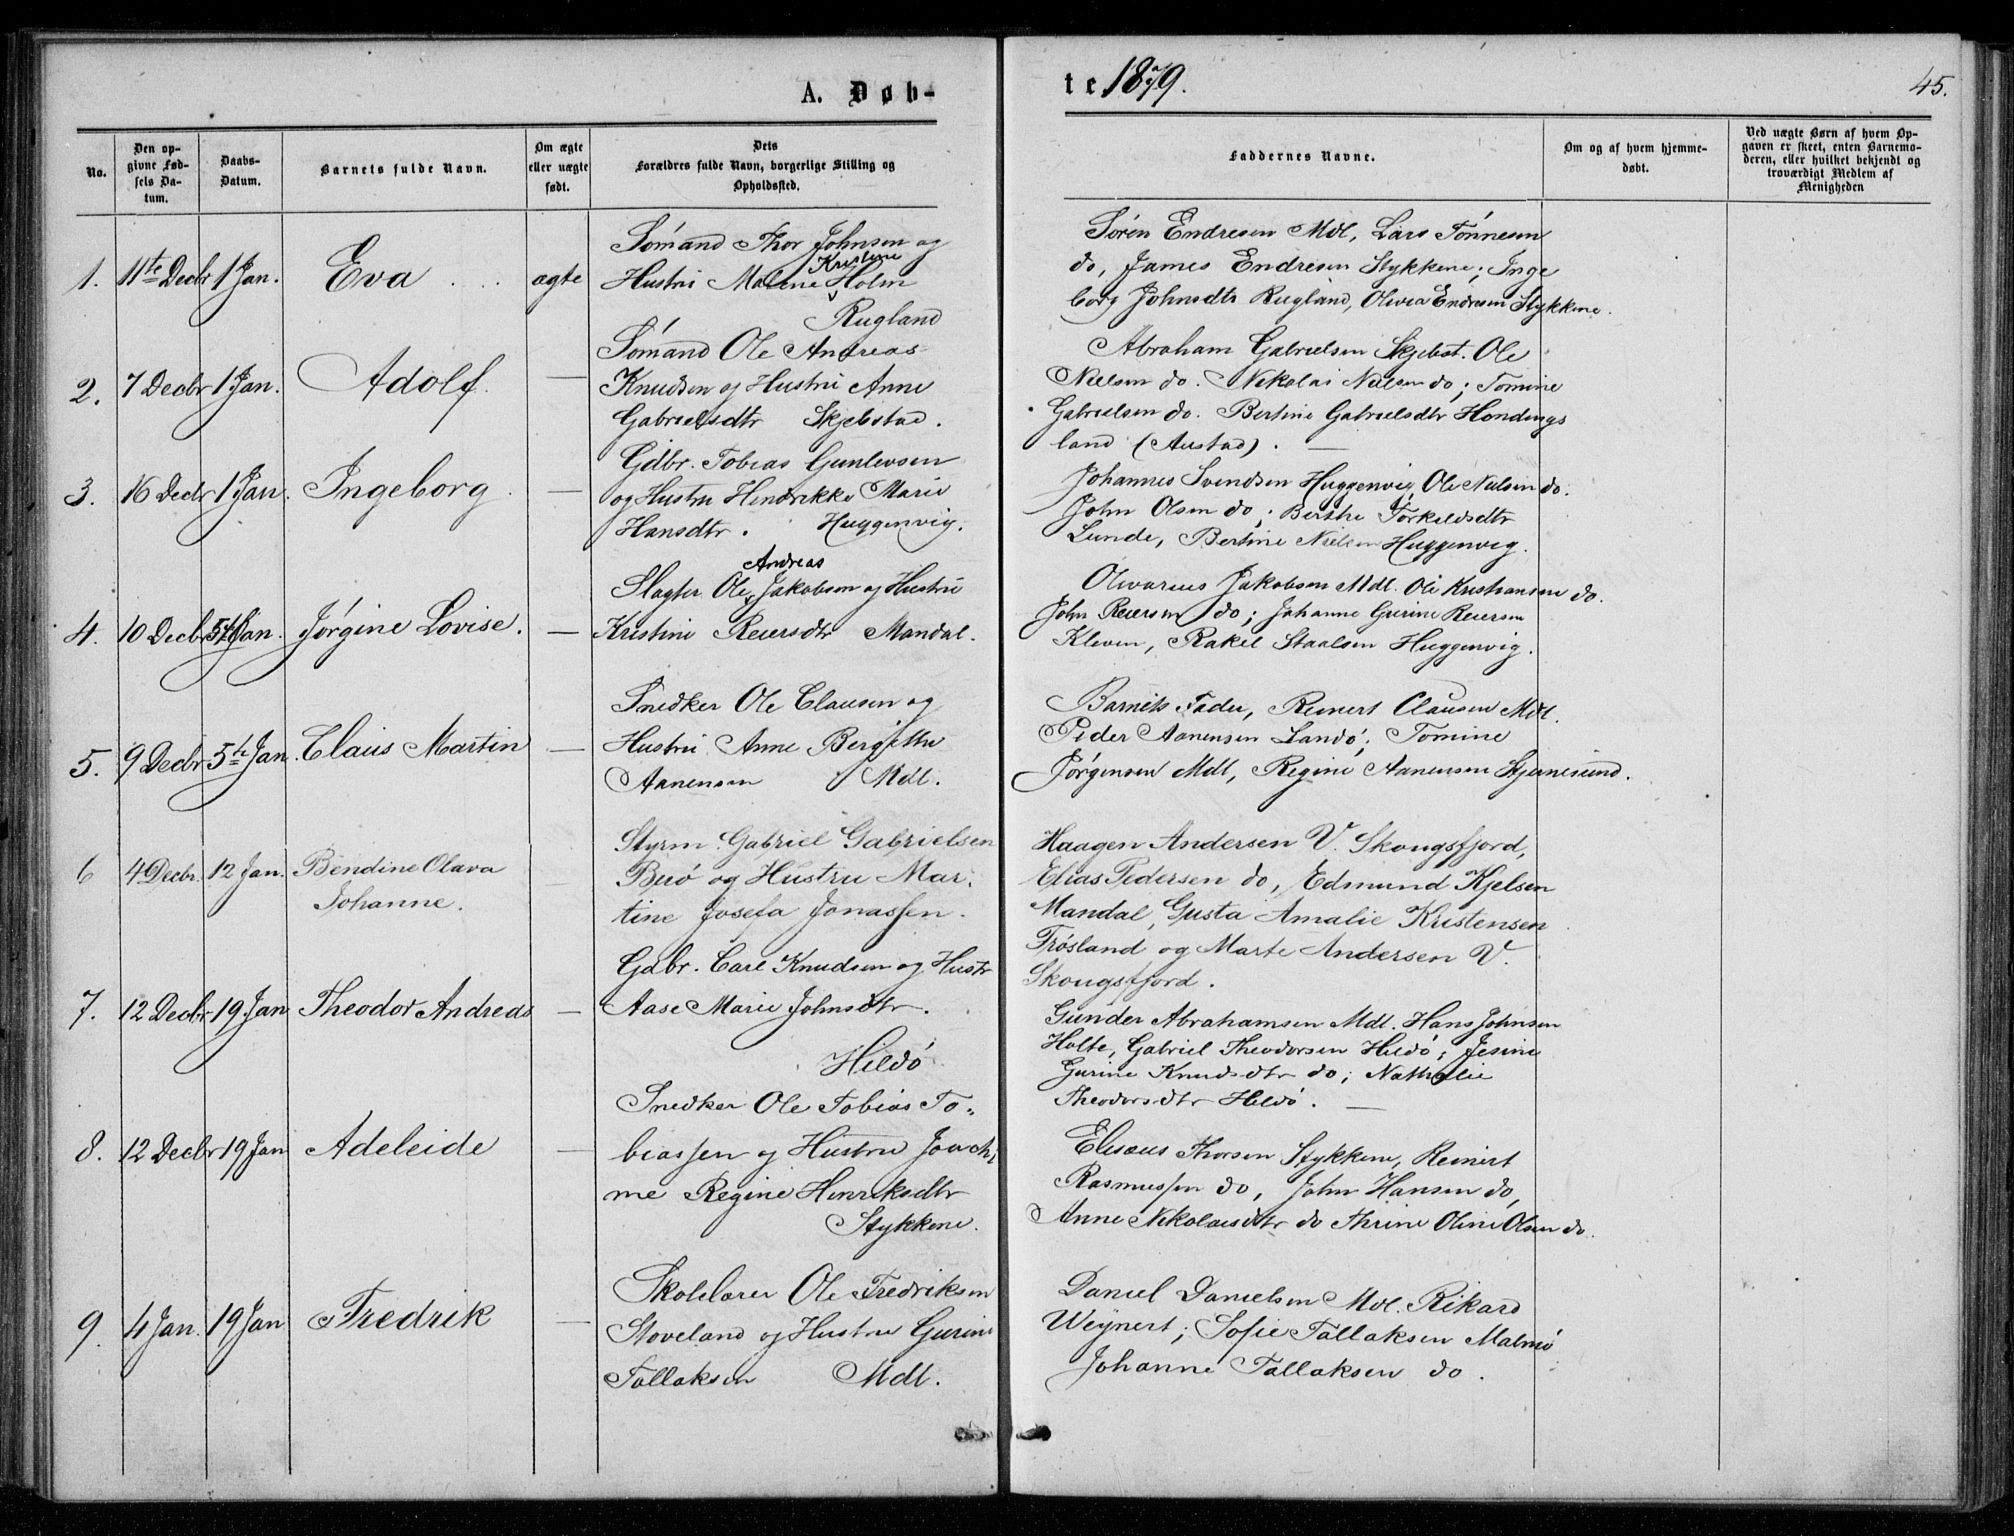 A. Døb-
te 1879.
45.
No.
Den op-
givne Fød-
sels Da-
tum.
Daabs-
Datum.
Barnets fulde Navn.
Om ægte
eller uægte
født.
Dets
Forældres fulde Navn, borgerlige Stilling og
Opholdssted.
Faddernes Navne.
Om og af hvem hjemme-
døbt.
Ved uægte Børn af hvem Op-
gaven er skeet, enten Barnemo-
deren, eller hvilket bekjendt og
troværdigt Medlem af
Menigheden
1. 11te Decbr 1 Jan. Eva ægte
Sømand Thor Johnsen og
Kristine
Hustru Malene Holm
Rugland
Søren Endresen Mdl, Lars Tønnesen
do, James Endresen Stykkene; Inge
borg Johnsdtr Rugland, Olivia Endresen Stykkene.
2. 7 Decbr 1 Jan. Adolf. —
Sømand Ole Andreas
Knudsen og Hustru Anne
Gabrielsdtr Skjebstad.
Abraham Gabrielsen Skjebst. Ole
Nielsen do. Nikolai Nielsen do; Tomine
Gabrielsen do. Bertine Gabrielsdtr Hondings
land (Austad). —
3. 16 Decbr 1 Jan. Ingeborg. —
Gdbr. Tobias Gunlevsen
og Hustru Hendrikke Marie
Hansdtr. Huggenvig.
Johannes Svendsen Huggenvig, Ole Nielsen do.
John Olsen do; Berthe Torkeldsdtr
Lunde, Bertine Nielsen Huggenvig.
4. 10 Decbr 5te Jan. Jørgine Lovise. —
Andreas
Slagter Ole Jakobsen og Hustru
Kristine Reiersdtr Mandal.
Olivarius Jakobsen Mdl. Ole Kristiansen do.
John Reiersen do; Johanne Gurine Reiersen
Kleven, Rakel Staalsen Huggenvig.
5. 9 Decbr 5te Jan. Claus Martin —
Snedker Ole Clausen og
Hustru Anne Bergithe
Aanensen Mdl.
Barnets Fader, Reinert Clausen Mdl.
Peder Aanensen Landø; Tomine
Jørgensen Mdl, Regine Aanensen Skjernesund.
6 4 Decbr. 12 Jan. Bendine Olava
Johanne. —
Styrm. Gabriel Gabrielsen
Buø og Hustru Mar-
tine Josefa Jonassen.
Haagen Andersen V. Skougsfjord,
Elias Pedersen do, Edmund Kjelsen
Mandal, Gusta Amalie Kristensen
Frøsland og Marte Andersen V.
Skougsfjord.
7. 12 Decbr 19 Jan Theodor Andreas —
Gdbr. Carl Knudsen og Hustr
Aase Marie Johnsdtr.
Hildø
Gunder Abrahamsen Mdl. Hans Johnsen
Holte, Gabriel Theodorsen Hildø; Jesine
Gurine Knudsdtr do; Nathalie
Theodorsdtr Hildø. —
8. 12 Decbr 19 Jan Adeleide —
Snedker Ole Tobias To-
biassen og Hustru Joachi
me Regine Henriksdtr
Stykkene.
Elisæus Thorsen Stykkene, Reinert
Rasmussen do, John Hansen do,
Anne Nikolaisdtr do Thrine Oline Olsen do.
9. 4 Jan. 19 Jan Fredrik —
Skolelærer Ole Fredriksen
Stoveland og Hustru Gurine
Tallaksen Mdl.
Daniel Danielsen Mdl. Rikard
Weynert; Sofie Tallaksen Malmø
Johanne Tallaksen do.